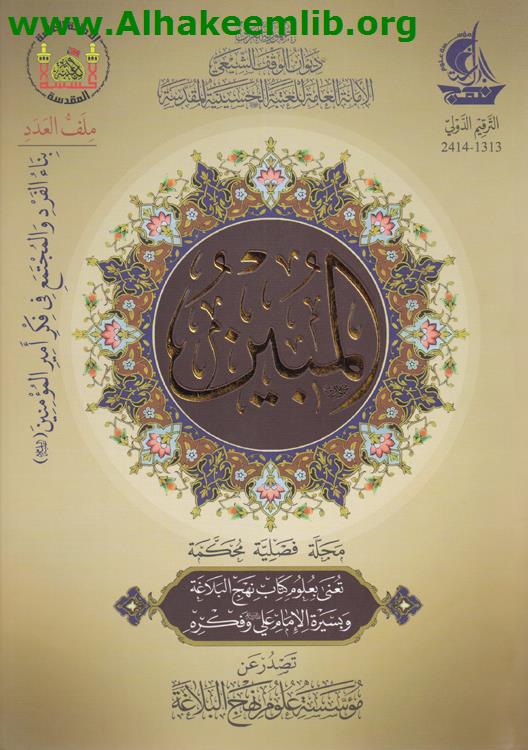 www.Alhakeemlib.org
ديوان الوقف الشيعي
الأمانة العامة للعتبة الحسينية المقدسة
الترقيم الدولي
2414-1313
ملف العدد
بناء الفرد والمجتمع في فكر أمير المؤمنين
المبين
مجلة فصلية محكمة
تعنى بعلوم كتاب نهج البلاغة
وبسيرة الإمام علي وفكره
تصدر عن
مؤسسة علوم نهج البلاغة